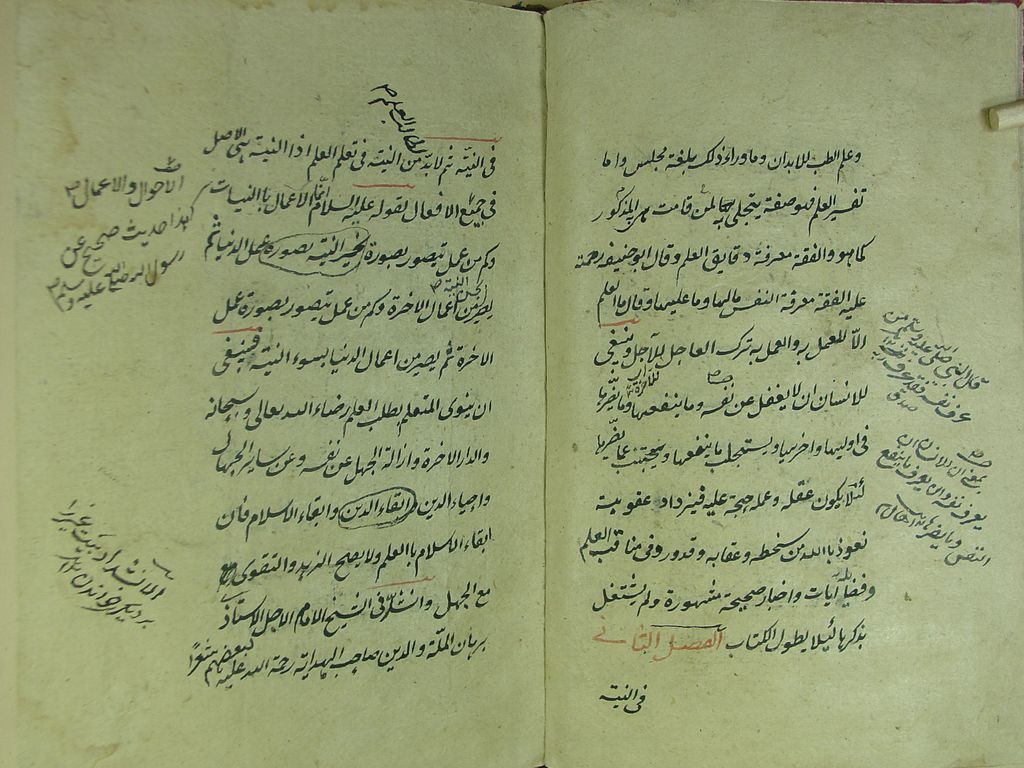 وعلم الطب للابدان وماوراء ذلك بلغة مجلس واما
تفسير العلم فهو صفة يتجلى بها لمن قامت هى به المذكور
كماهو والفقة معرفة دقايق العلم وقال ابوحنيفه رحمة
عليه الفقة معرفة النفس مالها وماعليها وقال ما العلم
الاّ للعمل به والعمل به ترك العاجل للآجل وينبغى
للانسان ان لايغفل عن نفسه وماينفعها ومايضّرها
فى اوليها واخريها ويستجلب ماينفعها ويجتنب عمايضّرها
لئلايكون عقله وعمله حجة عليه فيزداد عقوبية
نعوذ باالله من سخطه وعقابه وقدورد فى مناقب العلم
وفضايله آيات واخبار صحيحة مشهورة ولم يشتغل
بذكرها لئيلا يطول الكتاب الفصل الثانى
فى النيته
قال النبى صلى الله عليه وسلم من
عرف نفسه فقد عرف ربه
يعرف نفسه وان يعرف ماينفع
النفس
لطالب العلم
فى النيّة ثم لابدّ من النيته فى تعلم العلم اذا النيته هى الاصل
فى جميع الافعال لقوله عليه السلام انما الاعمال باالنيات
وكم من عمل يتصور بصورة عمل الدنيا ثم
يصير من اعمال الاخرة وكم من عمل يتصور بصورة عمل
الاخرة ثم يصير من اعمال الدنيا بسوء النيته فينبغى
ان ينوى المتعلم بطلب العلم رضاء الله تعالى وسبحانه
والدار الاخرة وازالة الجهل عن نفسه وعن ساير الجهال
واحياء الدين وابقاء الدين وابقاء الاسلام فأن
ابقاء الاسلام باالعلم ولايصح الزهد والتقوى
مع الجهل وانشدنى الشيخ الامام الاجل الاستاذ
برهان الملّة والدين صاحب الهدايته رحمة الله عليه لبعضهم شعرًا
الاحوال والاعمال
كهذا حديث صحيح عن
رسول الله صلى الله عليه وسلم